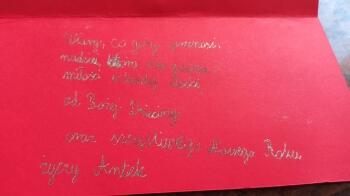 Wiary, co góry przenosi,
nadziei, która nie
miłości w każdej ilości
od Bożej Dzieciny
oraz szczęśliwego Nowego Roku
życzy Antek